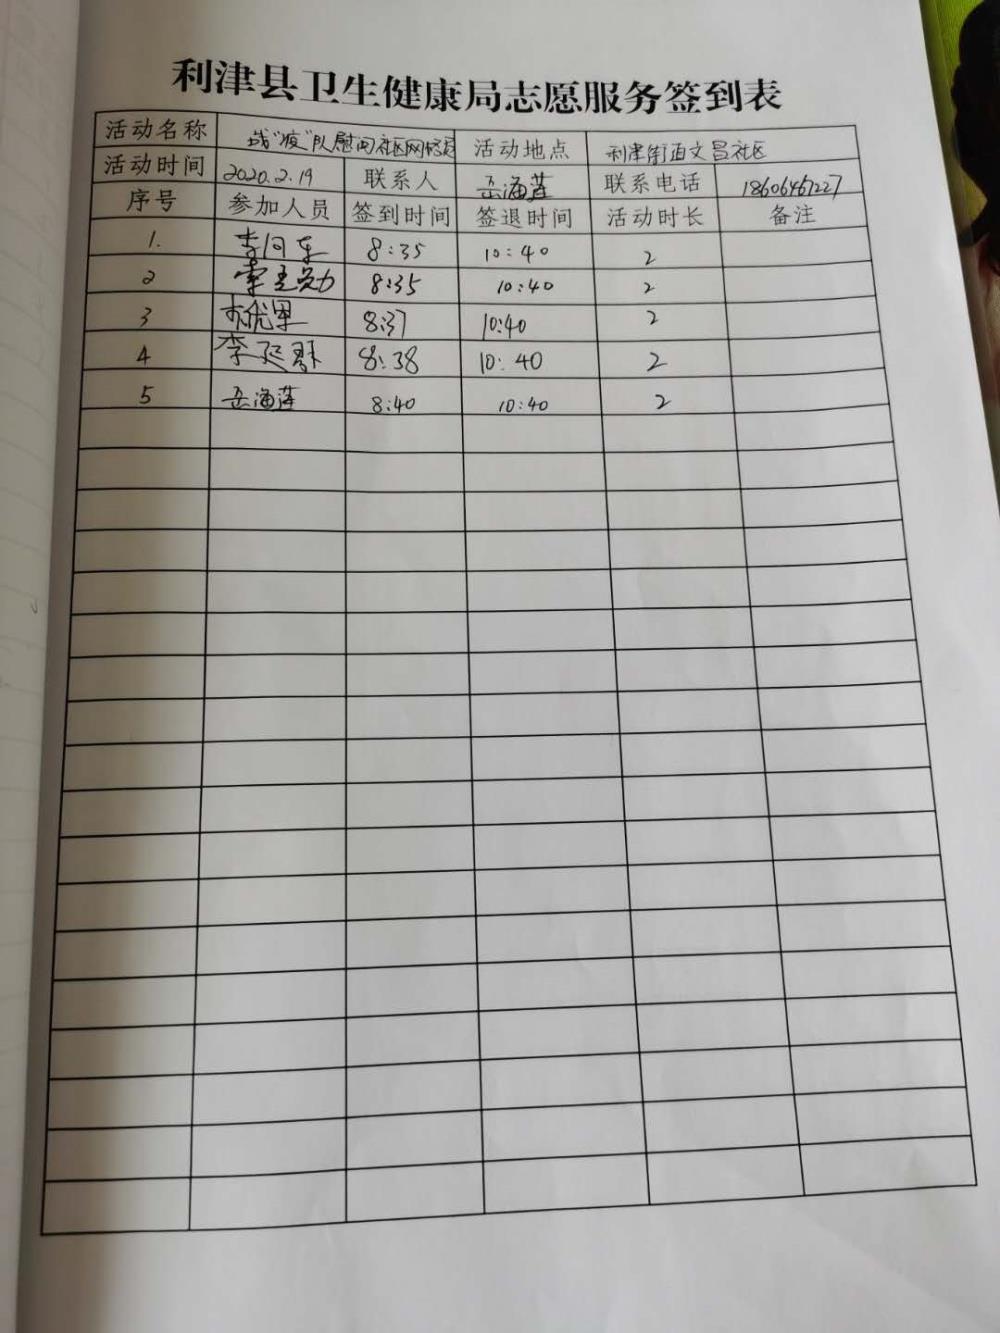 利津县卫生健康局志愿服务签到表
活动名称 战"疫"队慰问社区网格员 活动地点 利津街道文昌社区
活动时间 2020.2.19 联系人 岳海莲 联系电话 18606461227
序号 参加人员 签到时间 签退时间 活动时长 备注
1. 李向东 8:35 10:40 2
2 8:35 10:40 2
3 8:37 10:40 2
4 李延群 8:38 10:40 2
5 岳海莲 8:40 10:40 2